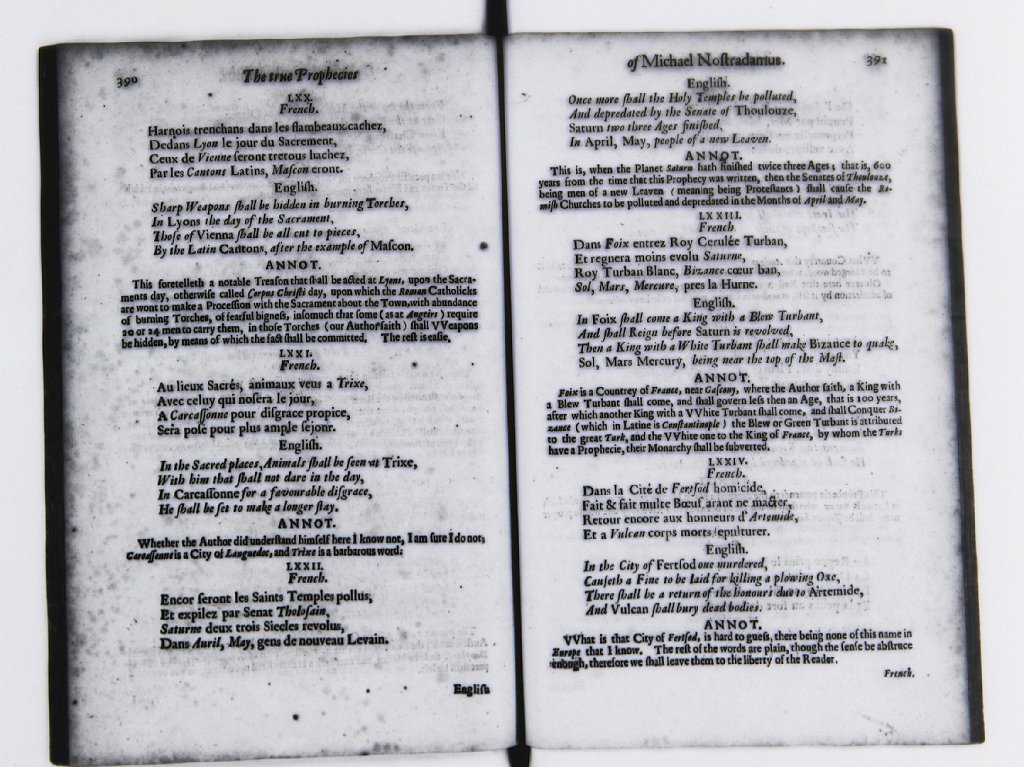 390
The true Prophecies
LXX.
French.
Harnois trenchans dans les flambeaux cachez,
Dedans Lyon le jour du Sacrement,
Ceux de Vienne ſeront tretous hachez,
Par les Cantons Latins, Maſcon eront.
Engliſh.
Sharp Weapons ſhall be hidden in burning Torches,
In Lyons the day of the Sacrament,
Thoſe of Vienna ſhall be all cut to pieces,
By the Latin Cantons, after the example of Maſcon.
ANNOT.
This foretelleth a notable Treaſon that ſhall be acted at Lyons, upon the Sacra-
ments day, otherwiſe called Corpus Chriſti day, upon which the Roman Catholicks
are wont to make a Proceſſion with the Sacrament about the Town, with abundance
of burning Torches, of fearful bigneſs, inſomuch that ſome (as at Angeirs) require
20 or 24 men to carry them, in thoſe Torches (our Author ſaith) ſhall VVeapons
be hidden, by means of which the fact ſhall be committed. The reſt is eaſie.
LXXI.
French.
Au lieux Sacrés, animaux veus a Trixe,
Avec celuy qui noſera le jour,
A Carcaſſonne pour diſgrace propice,
Sera poſé pour plus ample ſejour.
Engliſh.
In the Sacred places, Animals ſhall be ſeen at Trixe,
With him that ſhall not dare in the day,
In Carcaſſonne for a favourable diſgrace,
He ſhall be ſet to make a longer ſtay.
ANNOT.
Whether the Author did underſtand himſelf here I know not, I am ſure I do not;
Carcaſſonne is a City of Languedoc, and Trixe is a barbarous word.
LXXII.
French.
Encor ſeront les Saints Temples pollus,
Et expilez par Senat Tholoſain,
Saturne deux trois Siecles revolus,
Dans Auril, May, gens de nouveau Levain.
Engliſh
of Michael Noſtradamus.
391
Engliſh.
Once more ſhall the Holy Temples be polluted,
And depredated by the Senate of Thoulouze,
Saturn two three Ages finiſhed,
In April, May, people of a new Leaven.
ANNOT.
This is, when the Planet Saturn hath finiſhed twice three Ages; that is, 600
years from the time that this Prophecy was written, then the Senates of Thoulouze,
being men of a new Leaven (meaning being Proteſtants) ſhall cauſe the Ro-
miſh Churches to be polluted and depredated in the Months of April and May.
LXXIII.
French
Dans Foix entrez Roy Cerulée Turban,
Et regnera moins evolu Saturne,
Roy Turban Blanc, Bizance cœur ban,
Sol, Mars, Mercure, pres la Hurne.
Engliſh.
In Foix ſhall come a King with a Blew Turbant,
And ſhall Reign before Saturn is revolved,
Then a King with a White Turbant ſhall make Bizance to quake,
Sol, Mars Mercury, being near the top of the Maſt.
ANNOT.
Foix is a Countrey of France, near Gaſcony, where the Author ſaith, a King with
a Blew Turbant ſhall come, and ſhall govern leſs then an Age, that is 100 years,
after which another King with a VVhite Turbant ſhall come, and ſhall Conquer Bi-
zance (which in Latine is Conſtantinople) the Blew or Green Turbant is attributed
to the great Turk, and the VVhite one to the King of France, by whom the Turks
have a Prophecie, their Monarchy ſhall be ſubverted.
LXXIV.
French.
Dans la Cité de Fertſod homicide,
Fait & fait multe Bœuf arant ne macter,
Retour encore aux honneurs d'Artemide,
Et a Vulcan corps morts ſepulturer.
Engliſh.
In the City of Fertſod one murdered,
Cauſeth a Fine to be laid for killing a plowing Oxe,
There ſhall be a return of the honours due to Artemide,
And Vulcan ſhall bury dead bodies.
ANNOT.
VVhat is that City of Fertſod, is hard to gueſs, there being none of this name in
Europe that I know. The reſt of the words are plain, though the ſenſe be abſtruce
enough, therefore we ſhall leave them to the liberty of the Reader.
French.